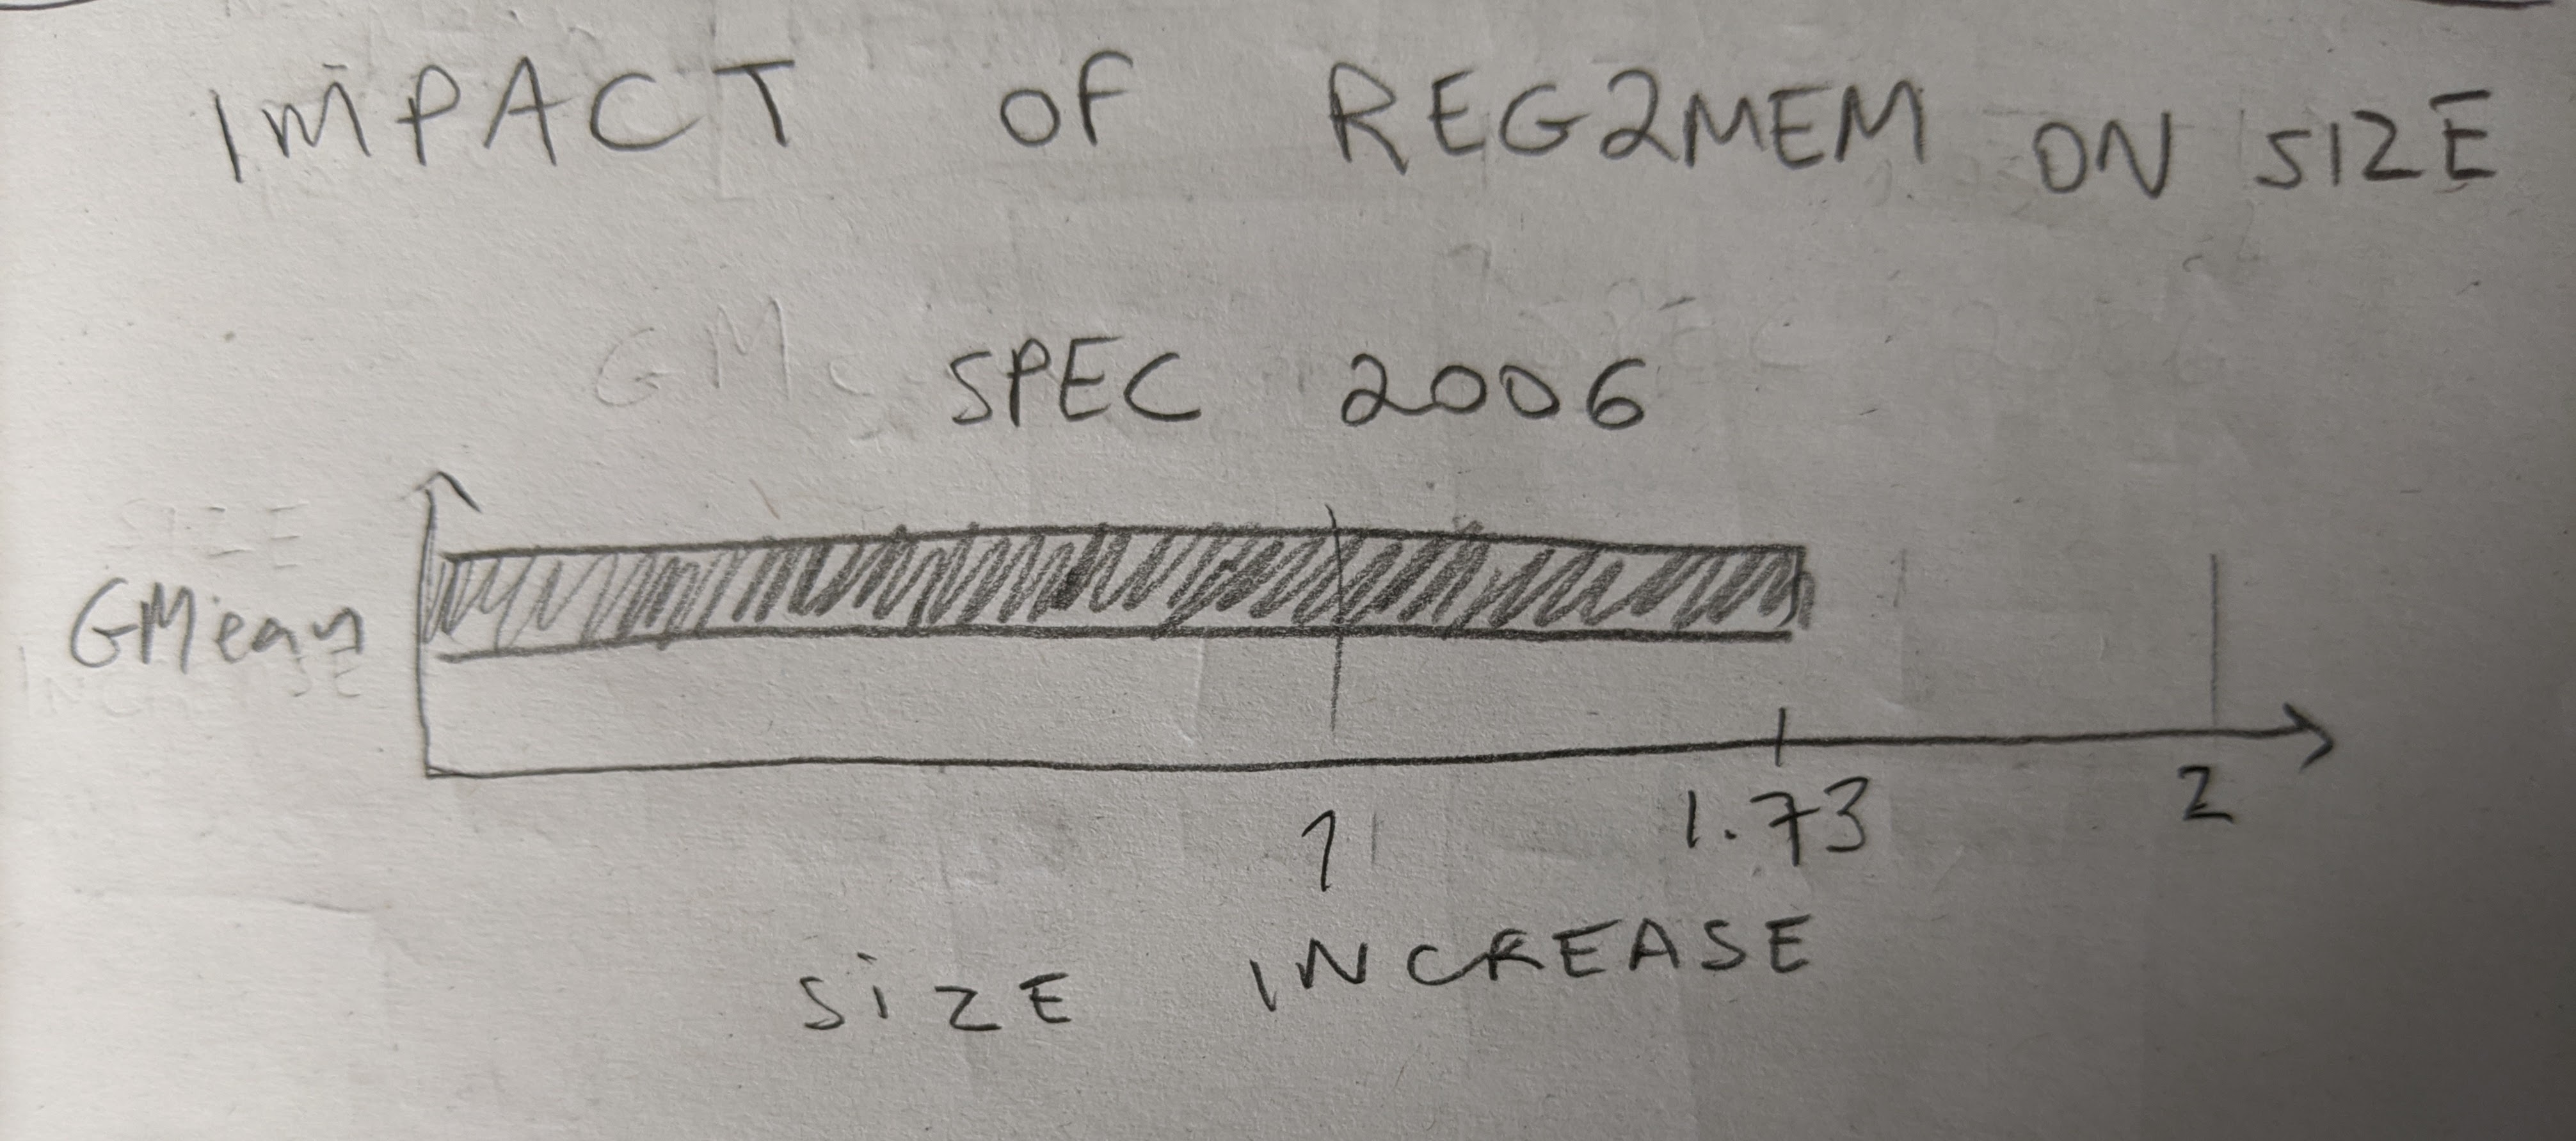 IMPACT OF REG2MEM ON SIZE
SPEC 2006
GMean
1 1.73 2
SIZE INCREASE